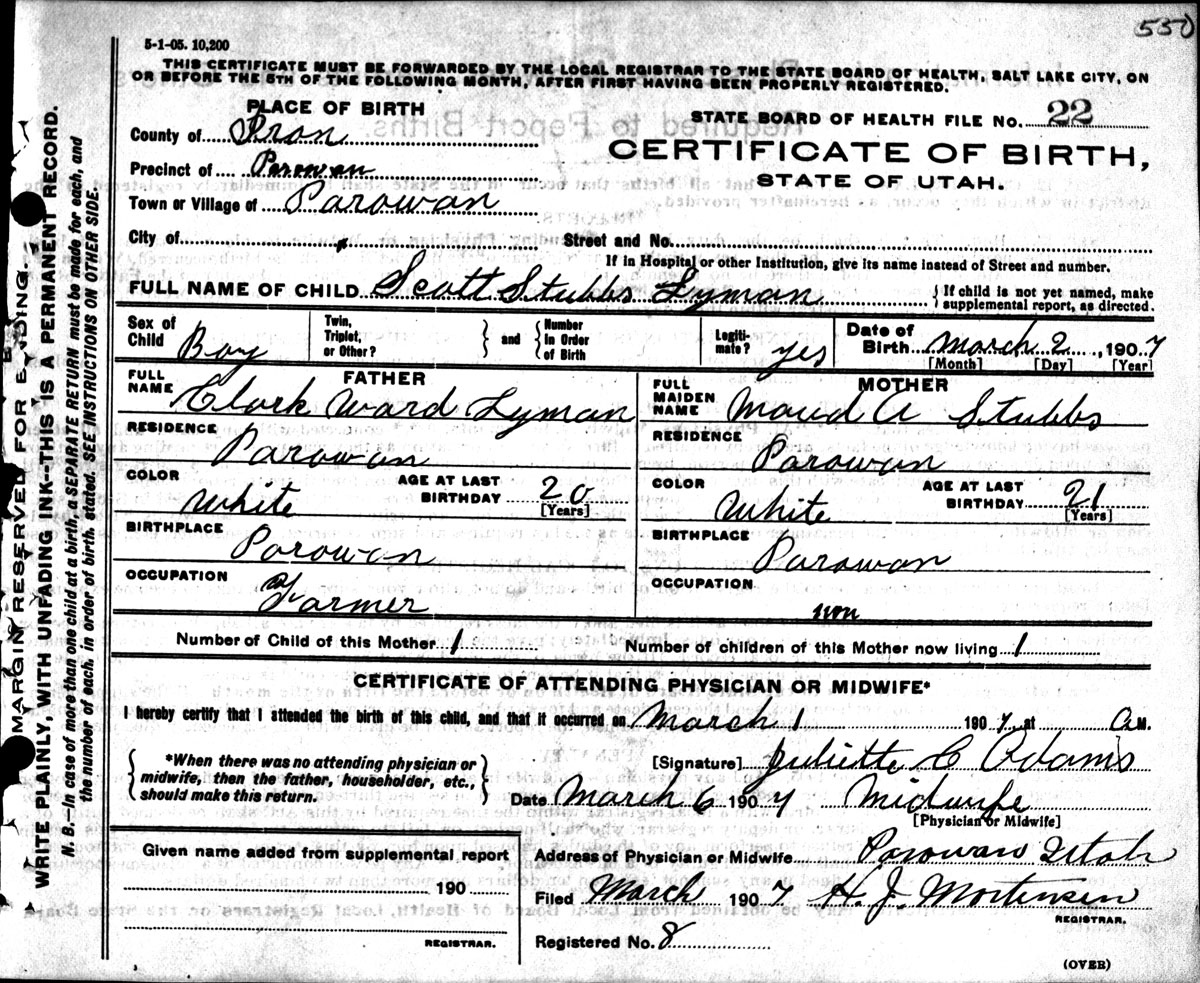 550
5-1-05. 10,200
THIS CERTIFICATE MUST BE FORWARDED BY THE LOCAL REGISTRAR TO THE STATE BOARD OF HEALTH, SALT LAKE CITY, ON
OR BEFORE THE 5TH OF THE FOLLOWING MONTH, AFTER FIRST HAVING BEEN PROPERLY REGISTERED.
PLACE OF BIRTH
County of Iron
Precinct of Parowan
Town or Village of Parowan
City of
STATE BOARD OF HEALTH FILE No. 22
CERTIFICATE OF BIRTH,
STATE OF UTAH.
Street and No.
If in Hospital or other Institution, give its name instead of Street and number.
FULL NAME OF CHILD Scott Stubbs Lyman { If child is not yet named, make supplemental report, as directed.
Sex of Child Boy
Twin, Triplet, or Other? } and { Number in Order of Birth
Legitimate? yes
Date of Birth March 2, 1907
[Month] [Day] [Year]
FATHER
FULL NAME Clark Ward Lyman
RESIDENCE
Parowan
COLOR White AGE AT LAST BIRTHDAY 20
[Years]
BIRTHPLACE
Parowan
OCCUPATION
Farmer
MOTHER
FULL MAIDEN NAME Maud A Stubbs
RESIDENCE
Parowan
COLOR White AGE AT LAST BIRTHDAY 21
[Years]
BIRTHPLACE
Parowan
OCCUPATION
non
Number of Child of this Mother 1 Number of children of this Mother now living 1
CERTIFICATE OF ATTENDING PHYSICIAN OR MIDWIFE*
I hereby certify that I attended the birth of this child, and that it occurred on March 1 1907, at A.M.
{ *When there was no attending physician or
midwife, then the father, householder, etc.,
should make this return. }
[Signature] Juliette C Adams
Date March 6 1907 Midwife
[Physician or Midwife]
Given name added from supplemental report
190
REGISTRAR.
Address of Physician or Midwife Parowan Utah
Filed March 1907 H. J. Mortensen
REGISTRAR.
Registered No. 8
(OVER)
MARGIN RESERVED FOR B
DING
WRITE PLAINLY, WITH UNFADING INK--THIS IS A PERMANENT RECORD.
N. B.—In case of more than one child at a birth, a SEPARATE RETURN must be made for each, and
the number of each, in order of birth, stated. SEE INSTRUCTIONS ON OTHER SIDE.